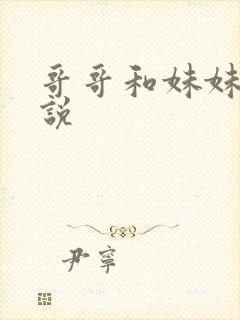 哥哥和妹妹
說
尹寧